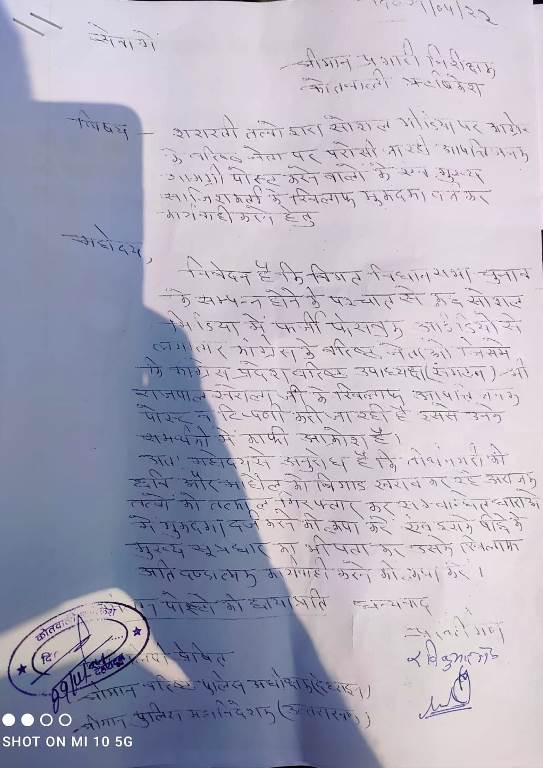 सेवा में
श्रीमान प्रभारी निरीक्षक
कोतवाली ऋषिकेश
विषय - शरारती तत्वों द्वारा सोशल मीडिया पर कांग्रेस
के वरिष्ठ नेता पर परोसी जा रही आपत्तिजनक
सामग्री पोस्ट करने वालों के एवं मुख्य
साजिशकर्ता के खिलाफ मुकदमा दर्ज कर
कार्यवाही करने हेतु
महोदय,
निवेदन है कि विगत विधानसभा चुनाव
के सम्पन्न होने के पश्चात से कुछ सोशल
मिडिया में फर्जी फेसबुक आईडियों से
लगातार कांग्रेस के वरिष्ठ नेताओं जिसमें
कि कांग्रेस प्रदेश वरिष्ठ उपाध्यक्ष (संगठन) श्री
राजपाल खरोला जी के खिलाफ आपत्तिजनक
पोस्ट व टिप्पणी की जा रही है इससे उनके
समर्थकों में काफी आक्रोश है।
अतः महोदय से अनुरोध है कि तीर्थनगरी की
छवि और माहौल को बिगाड़ खराब कर रहे अराजक
तत्वों को तत्काल गिरफ्तार कर सम्बन्धित धाराओं
में मुकदमा दर्ज करने की कृपा करें एवं इसके पीछे के
मुख्य सूत्रधार का भी पता कर उसके खिलाफ
अति दण्डात्मक कार्यवाही करने की कृपा करें।
पोस्टों की छायाप्रति धन्यवाद
प्रार्थी गण
प्रेषित
श्रीमान वरिष्ठ पुलिस अधीक्षक (देहरादून)
श्रीमान पुलिस महानिदेशक (उत्तराखण्ड)
कोतवाली
SHOT ON MI 10 5G